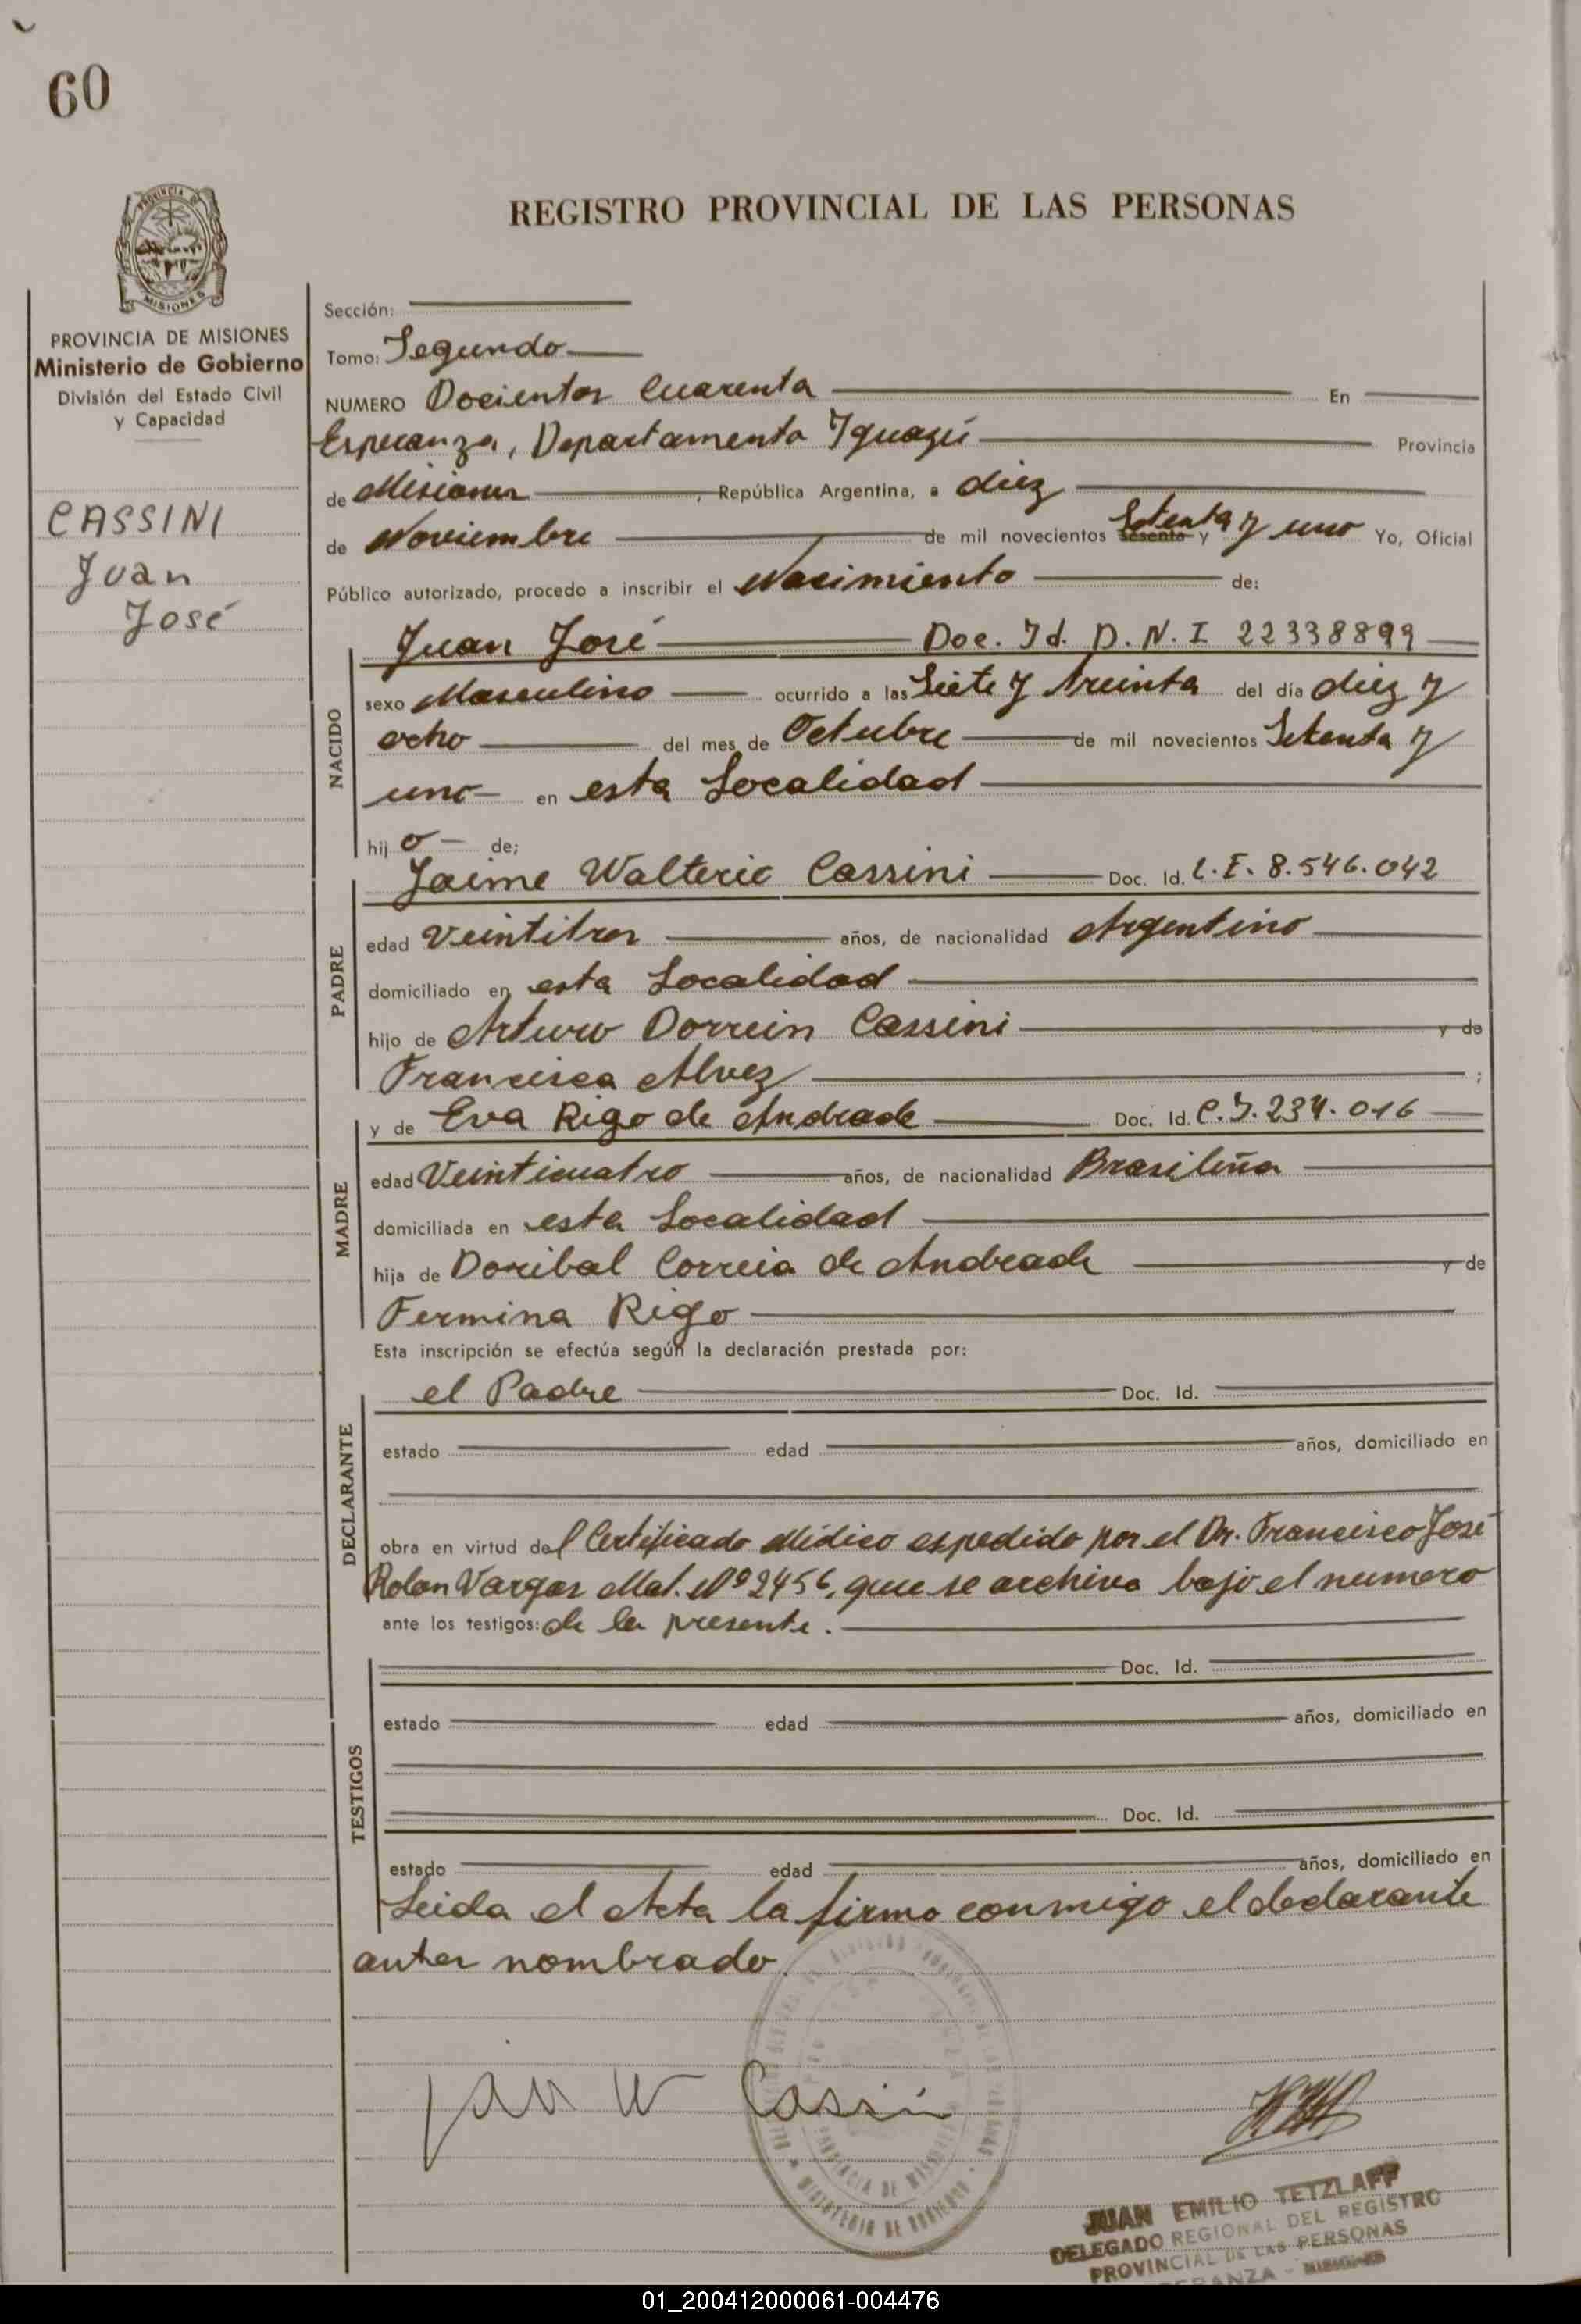 60
REGISTRO PROVINCIAL DE LAS PERSONAS
PROVINCIA
MISIONES
PROVINCIA DE MISIONES
Ministerio de Gobierno
División del Estado Civil
y Capacidad
CASSINI
Juan
José
Sección:
Tomo: Segundo
NUMERO Docientos Cuarenta En
Esperanza, Departamento Iguazú Provincia
de Misiones, República Argentina, a diez
de Noviembre de mil novecientos sesenta y Setenta y uno Yo, Oficial
Público autorizado, procedo a inscribir el Nacimiento de:
NACIDO
Juan José Doc. Id. D.N.I 22338899
sexo Masculino ocurrido a las Siete y treinta del día diez y
ocho del mes de Octubre de mil novecientos Setenta y
uno en esta Localidad
hijo de;
PADRE
Jaime Walterio Cassini Doc. Id. L.E. 8.546.042
edad Veintitres años, de nacionalidad Argentino
domiciliado en esta Localidad
hijo de Arturo Cassini y de
Francisca Alvez ;
MADRE
y de Eva Rigo de Andrade Doc. Id. C.I. 234.016
edad Veinticuatro años, de nacionalidad Brasileña
domiciliada en esta Localidad
hija de Doribal Correia de Andrade y de
Fermina Rigo
Esta inscripción se efectúa según la declaración prestada por:
DECLARANTE
el Padre Doc. Id.
estado edad años, domiciliado en
obra en virtud del Certificado Médico expedido por el Dr. Francisco José
Rolon Vargas Mat. Nº 2456, que se archiva bajo el numero
ante los testigos: de la presente.
TESTIGOS
Doc. Id.
estado edad años, domiciliado en
Doc. Id.
estado edad años, domiciliado en
Leida el Acta la firma conmigo el declarante
antes nombrado.
W Cassini
PROVINCIA DE MISIONES
MINISTERIO DE GOBIERNO
JUAN EMILIO TETZLAFF
DELEGADO REGIONAL DEL REGISTRO
PROVINCIAL DE LAS PERSONAS
ESPERANZA - MISIONES
01_200412000061-004476